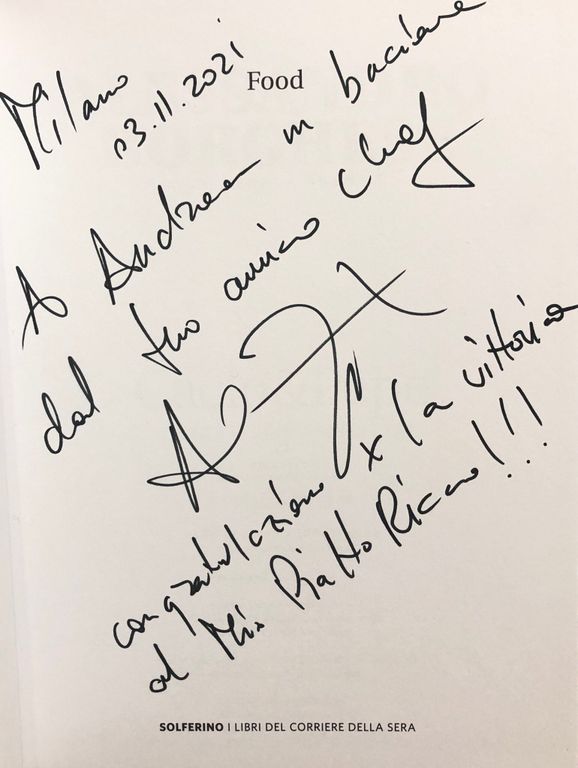 Food
Milano
13.11.2021
A Andrea un bacione
dal tuo amico chef
congratulazioni x la vittoria
al Mix Piatto Ricco!!!
SOLFERINO I LIBRI DEL CORRIERE DELLA SERA